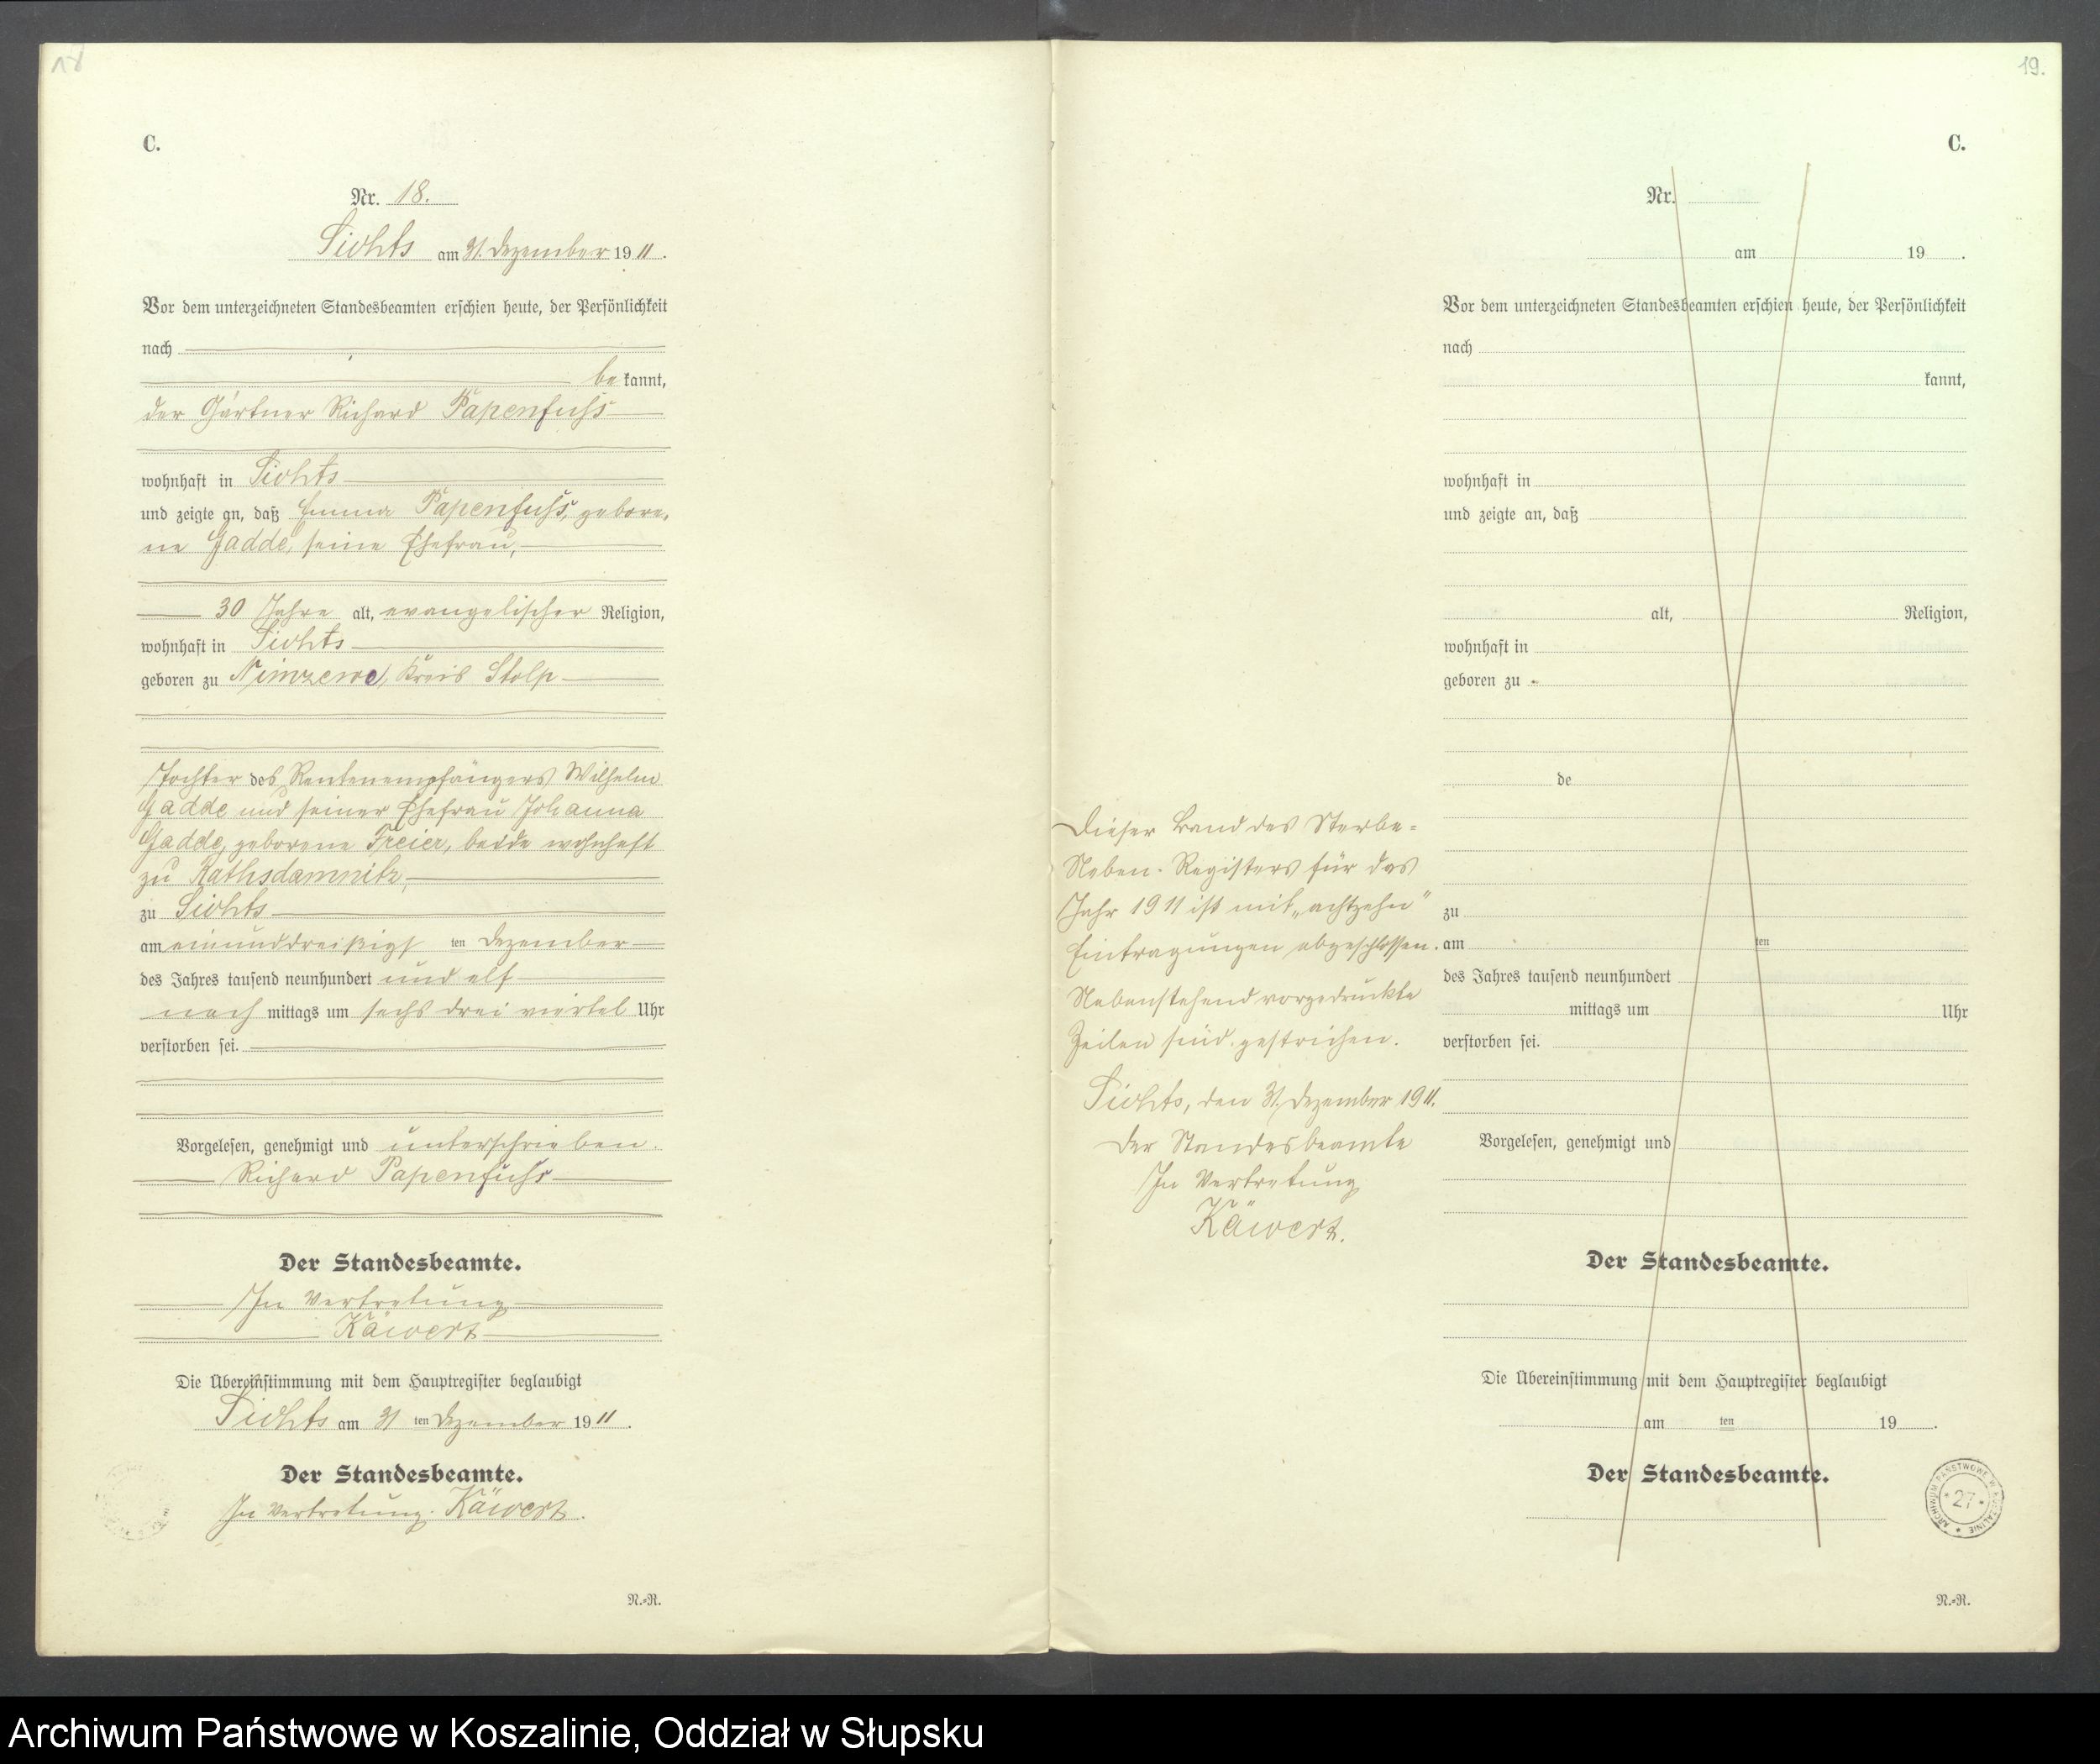 18
C.
Nr. 18.
Viohts am 31. Dezember 1911.
Vor dem unterzeichneten Standesbeamten erschien heute, der Persönlichkeit
nach
be kannt,
der Gärtner Richard Papenfuhs
wohnhaft in
und zeigte an, daß Emma Papenfuhs, gebore-
ne Gadde, seine Ehefrau,
30 Jahre alt, evangelischer Religion,
wohnhaft in
geboren zu Nimzewe, Kreis Stolp
Tochter des Rentenempfängers Wilhelm
Gadde und seiner Ehefrau Johanna
Gadde, geborene Freier, beide wohnhaft
zu Rathsdamnitz,
zu
am einunddreißigs ten Dezember
des Jahres tausend neunhundert und elf
nach mittags um sechs drei viertel Uhr
verstorben sei.
Vorgelesen, genehmigt und unterschrieben.
Richard Papenfuhs
Der Standesbeamte.
In Vertretung
Käwert
Die Übereinstimmung mit dem Hauptregister beglaubigt
am 31 ten Dezember 1911.
Der Standesbeamte.
In Vertretung. Käwert.
N.=R.
19.
C.
Nr.
am 19 .
Vor dem unterzeichneten Standesbeamten erschien heute, der Persönlichkeit
nach
kannt,
wohnhaft in
und zeigte an, daß
alt, Religion,
wohnhaft in
geboren zu
de
zu
am ten
des Jahres tausend neunhundert
mittags um Uhr
verstorben sei.
Vorgelesen, genehmigt und
Der Standesbeamte.
Die Übereinstimmung mit dem Hauptregister beglaubigt
am ten 19 .
Der Standesbeamte.
N.=R.
Dieser Band des Sterbe-
Neben-Registers für das
Jahr 1911 ist mit "achtzehn"
Eintragungen abgeschlossen.
Nebenstehend vorgedruckte
Zeilen sind gestrichen.
den 31. Dezember 1911.
Der Standesbeamte
In Vertretung
Käwert.
ARCHIWUM PAŃSTWOWE W KOSZALINIE
27
Archiwum Państwowe w Koszalinie, Oddział w Słupsku